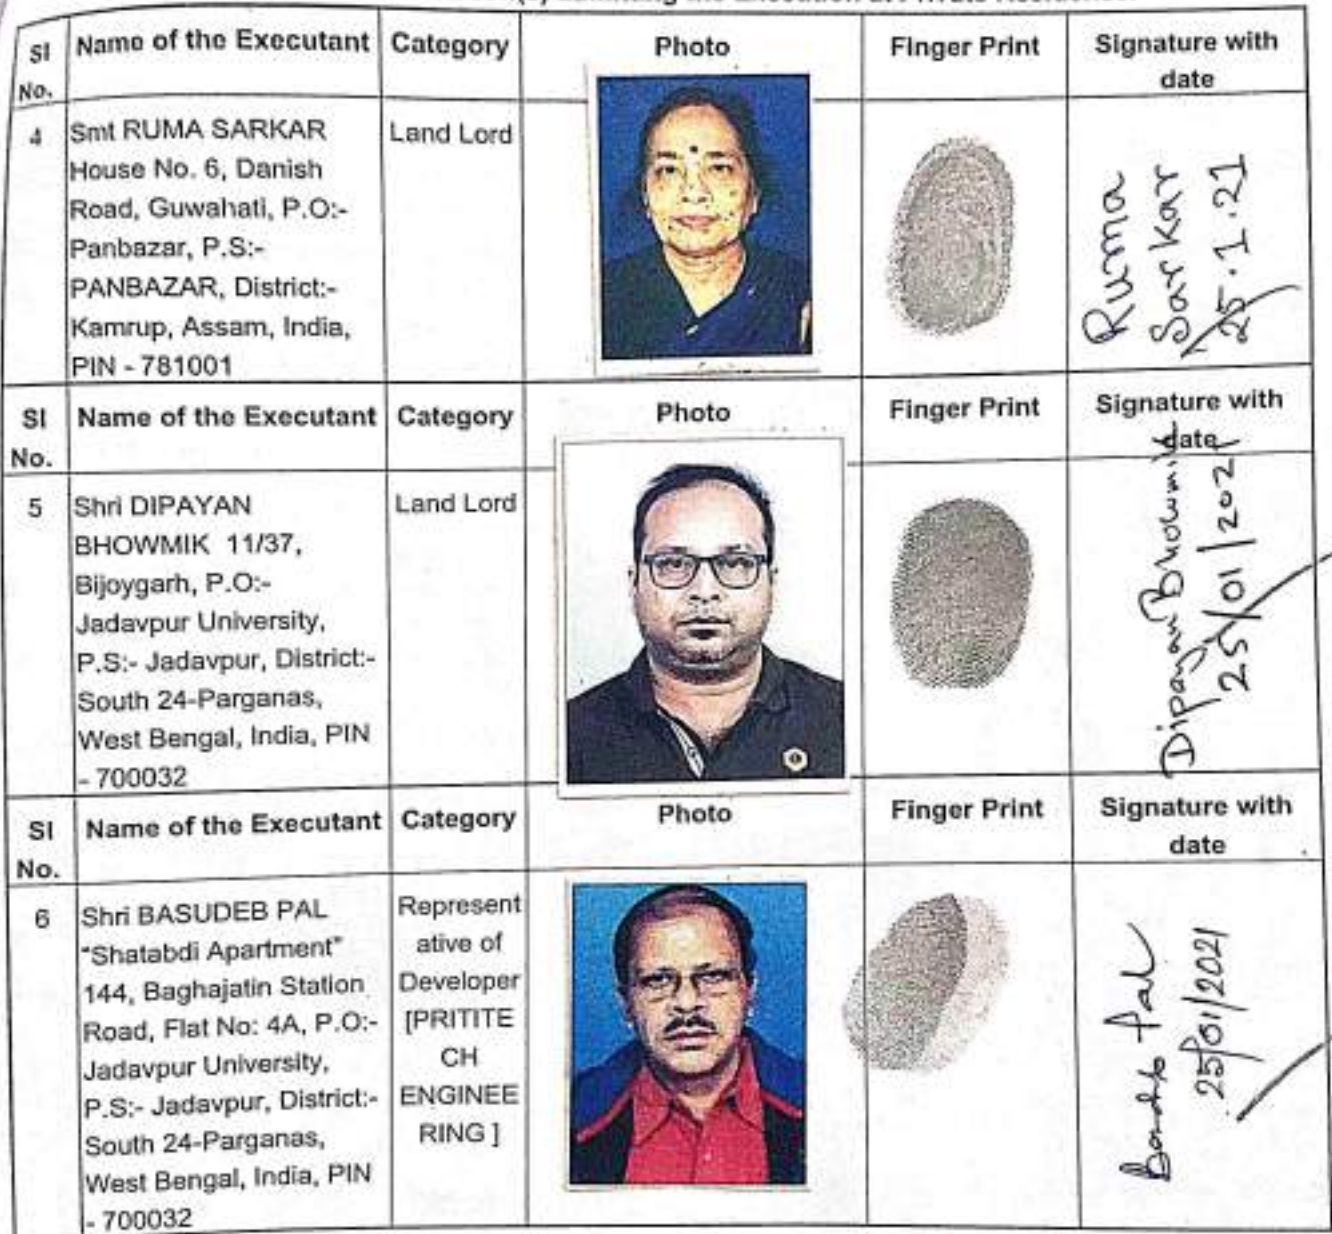 the Execution at Private Residence.
Sl No. Name of the Executant Category Photo Finger Print Signature with date
4 Smt RUMA SARKAR
House No. 6, Danish
Road, Guwahati, P.O:-
Panbazar, P.S:-
PANBAZAR, District:-
Kamrup, Assam, India,
PIN - 781001
Land Lord
Ruma
Sarkar
25.1.21
Sl No. Name of the Executant Category Photo Finger Print Signature with date
5 Shri DIPAYAN
BHOWMIK 11/37,
Bijoygarh, P.O:-
Jadavpur University,
P.S:- Jadavpur, District:-
South 24-Parganas,
West Bengal, India, PIN
- 700032
Land Lord
Dipayan Bhowmik
25/01/2021
Sl No. Name of the Executant Category Photo Finger Print Signature with date
6 Shri BASUDEB PAL
"Shatabdi Apartment"
144, Baghajatin Station
Road, Flat No: 4A, P.O:-
Jadavpur University,
P.S:- Jadavpur, District:-
South 24-Parganas,
West Bengal, India, PIN
- 700032
Represent
ative of
Developer
[PRITITE
CH
ENGINEE
RING ]
Pal
25/01/2021